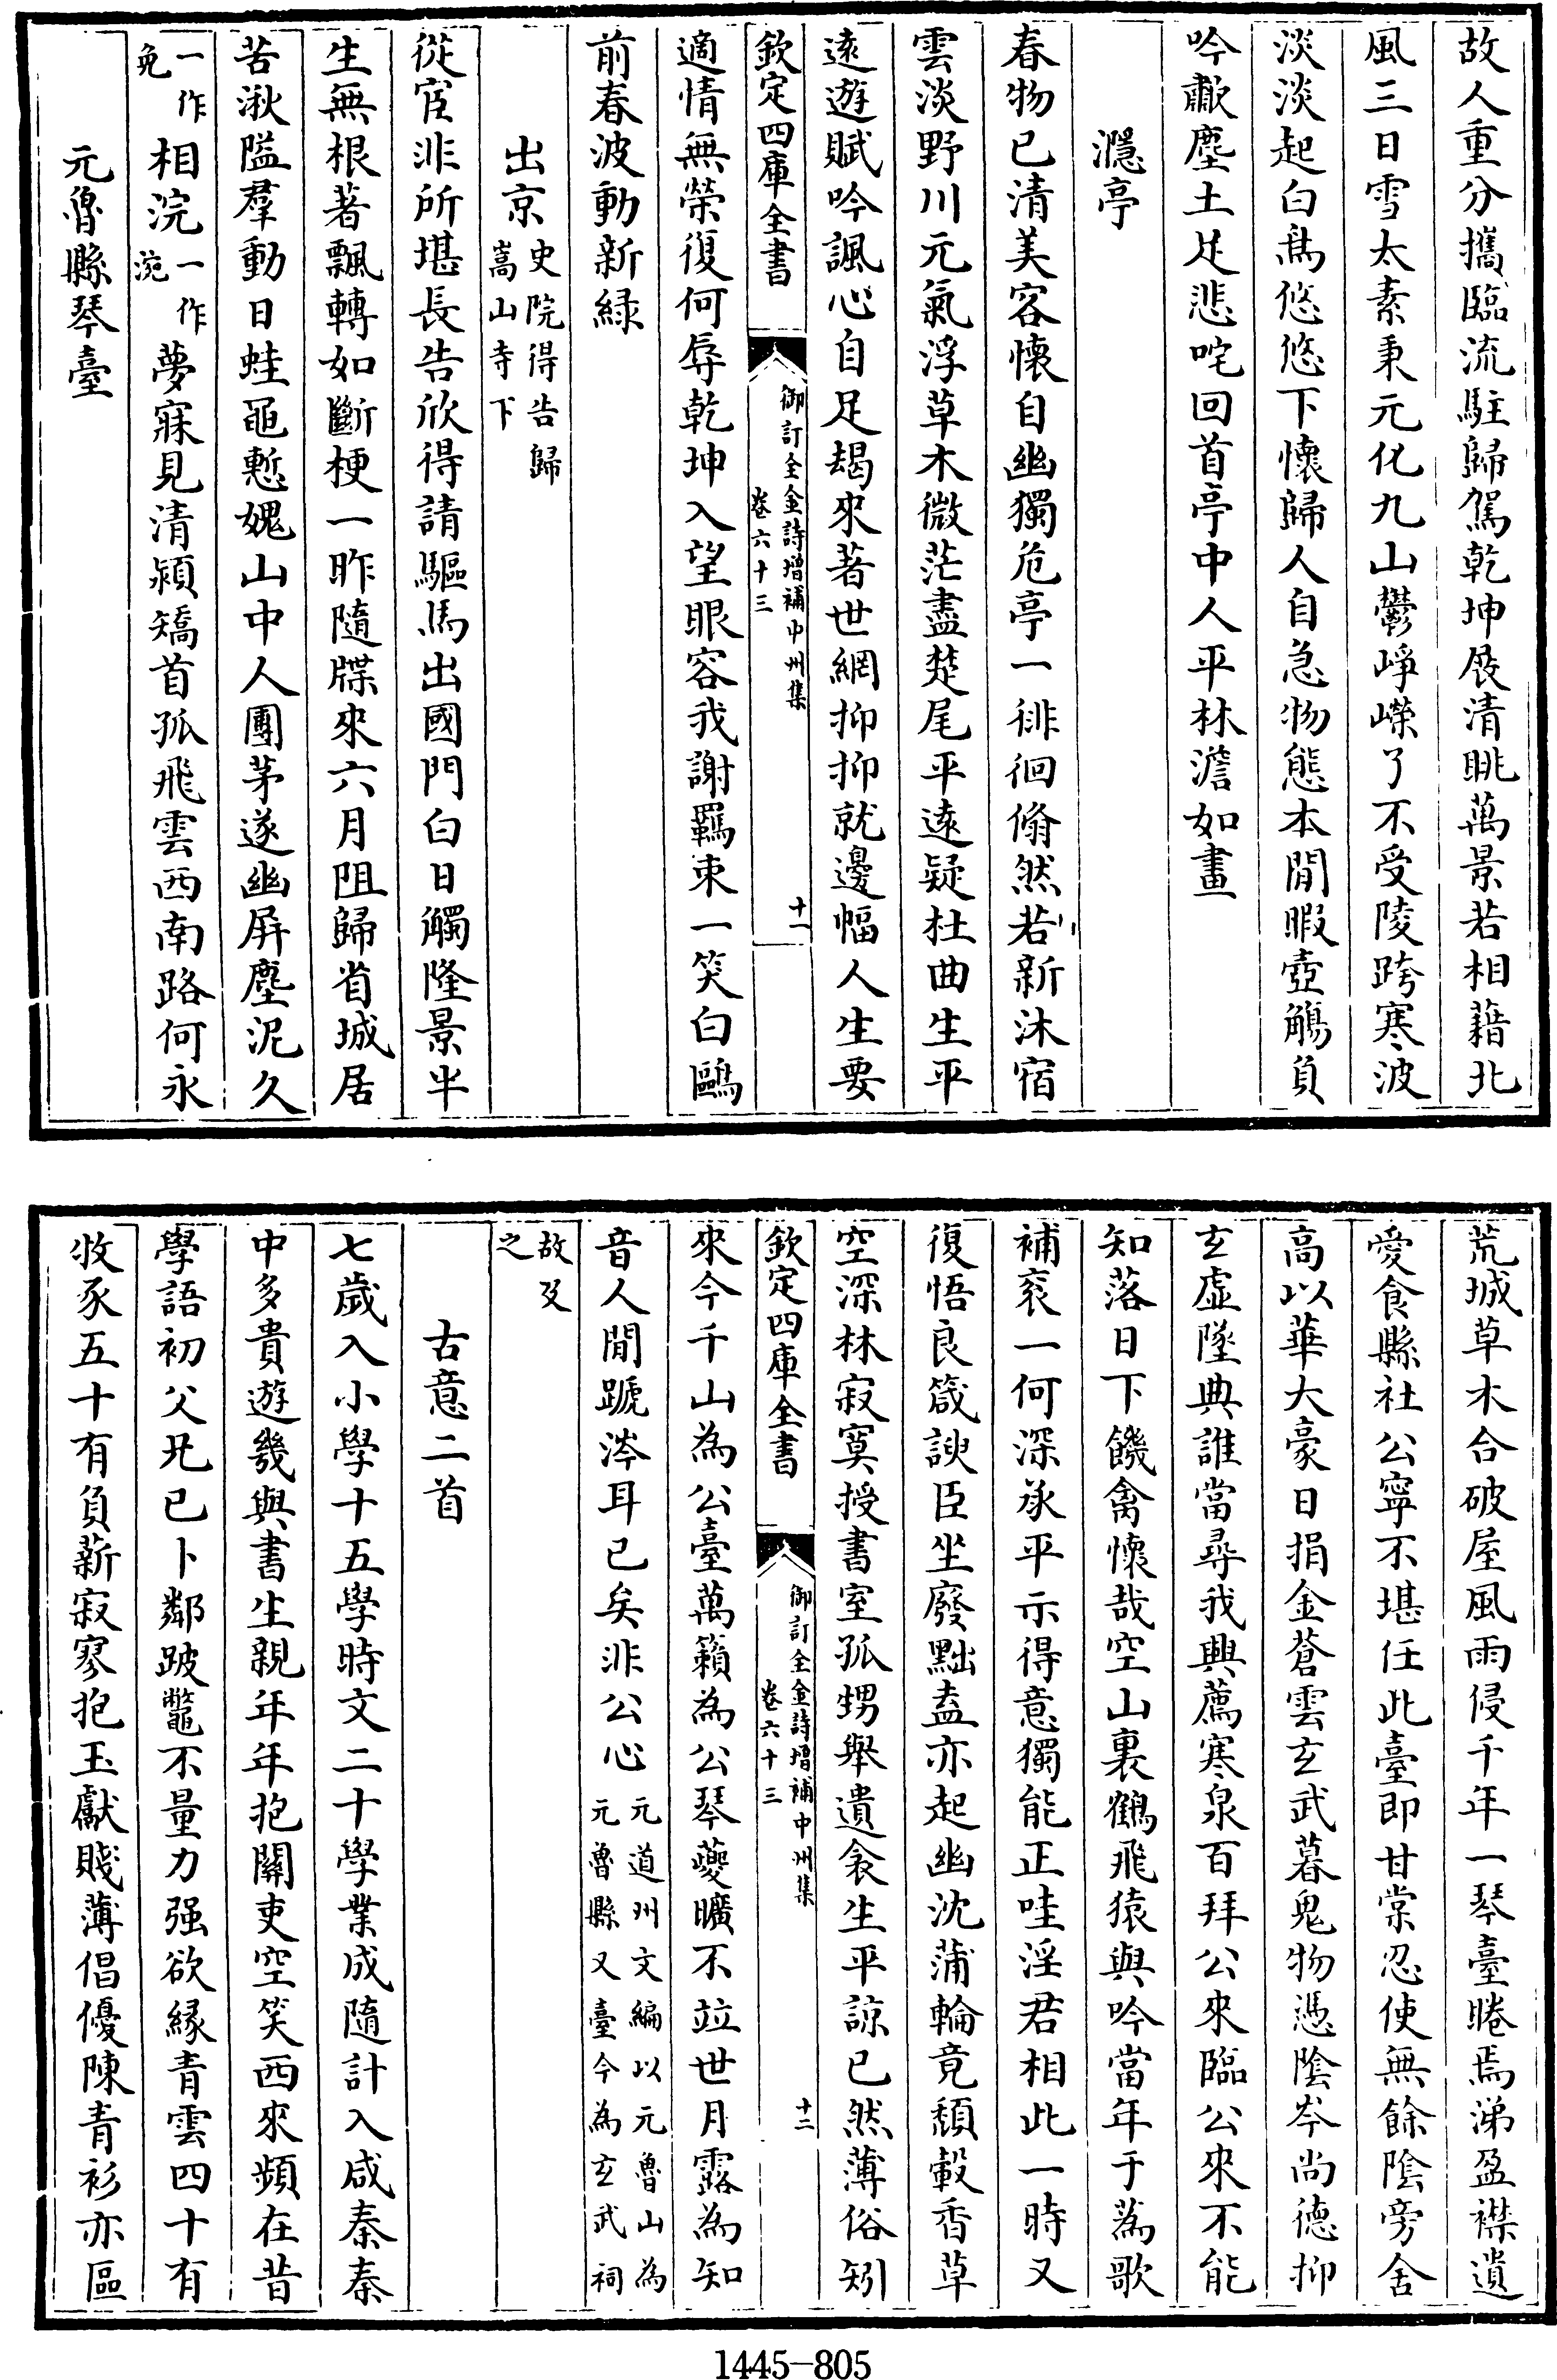 故人重分攜臨流駐歸駕乾坤展清眺萬景若相藉北
風三日雪太素秉元化九山鬱崢嶸了不受陵跨寒波
淡淡起白鳥悠悠下懷歸人自急物態本閒暇壺觴負
吟歗塵土足悲咤回首亭中人平林澹如畫
濦亭
春物已清美客懷自幽獨危亭一徘徊翛然若新沐宿
雲淡野川元氣浮草木微茫盡楚尾平遠疑杜曲生平
遠遊賦吟諷心自足朅來著世網抑抑就邊幅人生要
欽定四庫全書
御訂全金詩增補中州集
卷六十三
十一
適情無榮復何辱乾坤入望眼容我謝羈束一笑白鷗
前春波動新緑
出京史院得告歸
嵩山寺下
從宦非所堪長告欣得請驅馬出國門白日觸隆景半
生無根著飄轉如斷梗一昨隨牒來六月阻歸省城居
苦湫隘羣動日蛙黽慙媿山中人團茅遂幽屏塵泥久
一作
免相浣一作
涴夢寐見清潁矯首孤飛雲西南路何永
元魯縣琴臺
荒城草木合破屋風雨侵千年一琴臺睠焉涕盈襟遺
愛食縣社公寧不堪任此臺即甘棠忍使無餘陰旁舍
高以華大豪日捐金蒼雲玄武暮鬼物憑陰岑尚德抑
玄虛墜典誰當尋我興薦寒泉百拜公來臨公來不能
知落日下饑禽懷哉空山裏鶴飛猿與吟當年于蔿歌
補衮一何深承平示得意獨能正哇淫君相此一時又
復悟良箴諛臣坐廢黜盍亦起幽沈蒲輪竟頽轂香草
空深林寂寞授書室孤甥舉遺衾生平諒已然薄俗矧
欽定四庫全書
御訂全金詩增補中州集
卷六十三
十二
來今千山為公臺萬籟為公琴夔曠不竝世月露為知
音人間蹏涔耳已矣非公心元道州文編以元魯山為
元魯縣又臺今為玄武祠
故及
之
古意二首
七歲入小學十五學時文二十學業成隨計入咸秦秦
中多貴遊幾與書生親年年抱關吏空笑西來頻在昔
學語初父兄已卜鄰跛鼈不量力强欲緣青雲四十有
牧豕五十有負薪寂寥抱玉獻賤薄倡優陳青衫亦區
1445-805